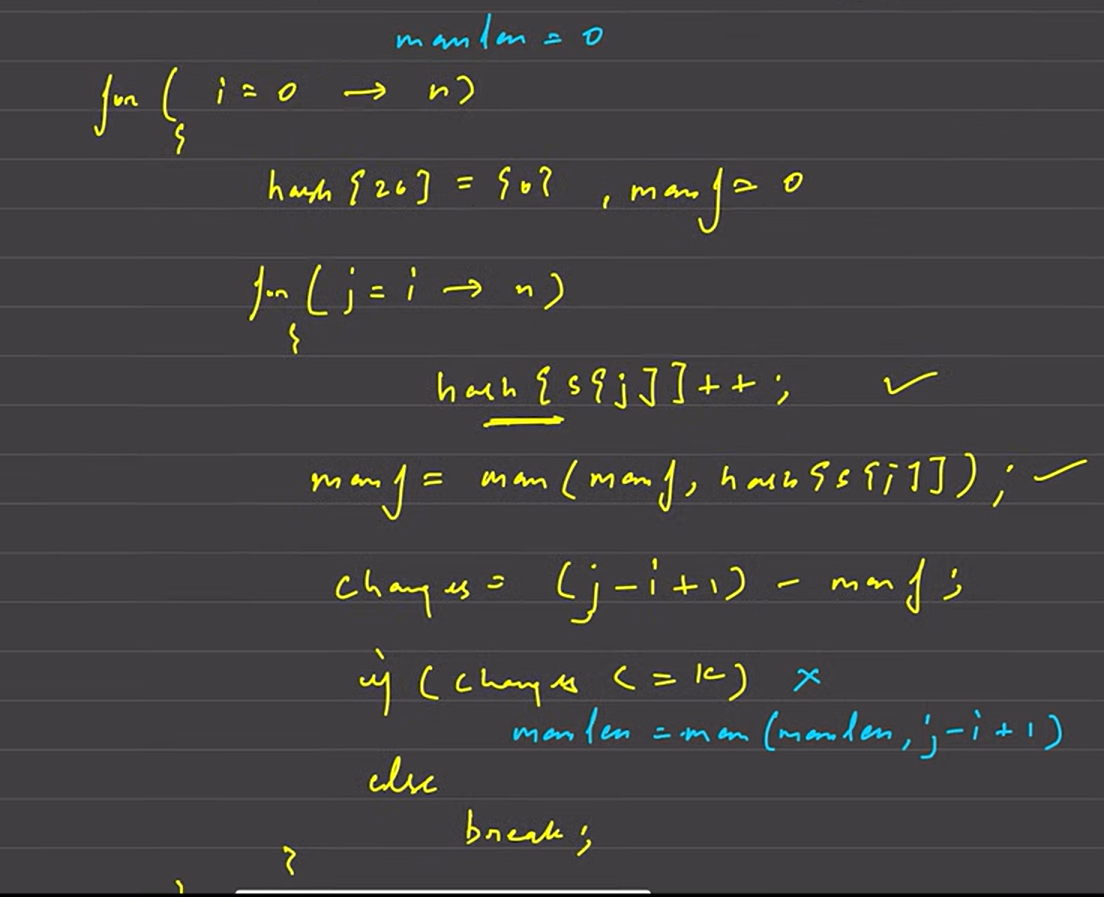 maxlen = 0
for ( i = 0 → n)
{
hash [26] = {0} , maxf = 0
for ( j = i → n)
{
hash [s[j]]++; ✓
maxf = max(maxf, hash[s[j]]); ✓
changes = (j-i+1) - maxf;
if (changes <= k) ×
maxlen = max(maxlen, j-i+1)
else
break;
}